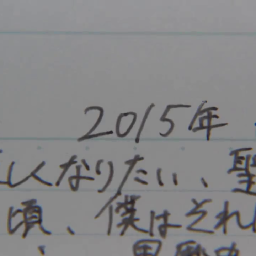 2015年
しくなりたい、聖
頃、僕はそれ